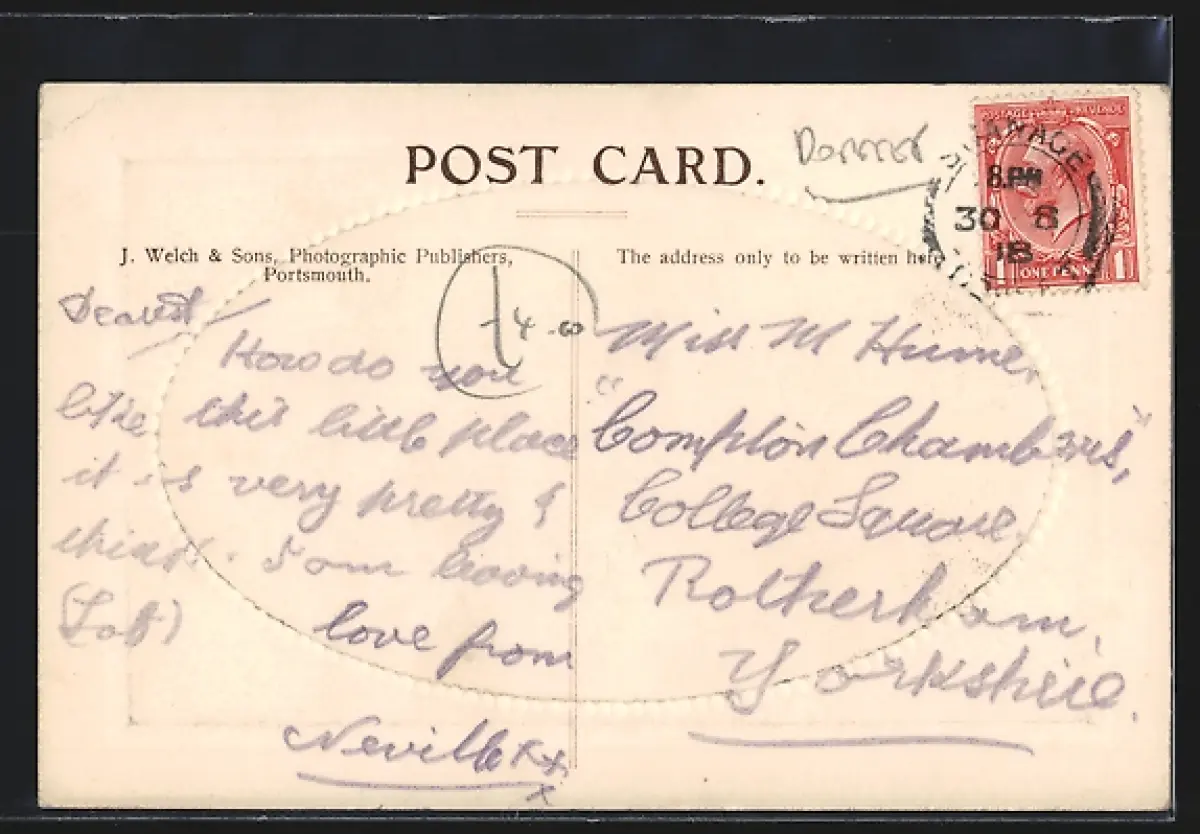 POST CARD.
Dorset
POSTAGE REVENUE
SWANAGE
8.PM
30 8
18
1 ONE PENNY 1
J. Welch & Sons, Photographic Publishers,
Portsmouth.
The address only to be written here
4
Dearest
How do you
like this little place
it is very pretty I
think. I am leaving
(Sat)
love from
Neville xx
x
Miss M Hume,
"Compton Chambers,"
College Square.
Rotherham,
Yorkshire.